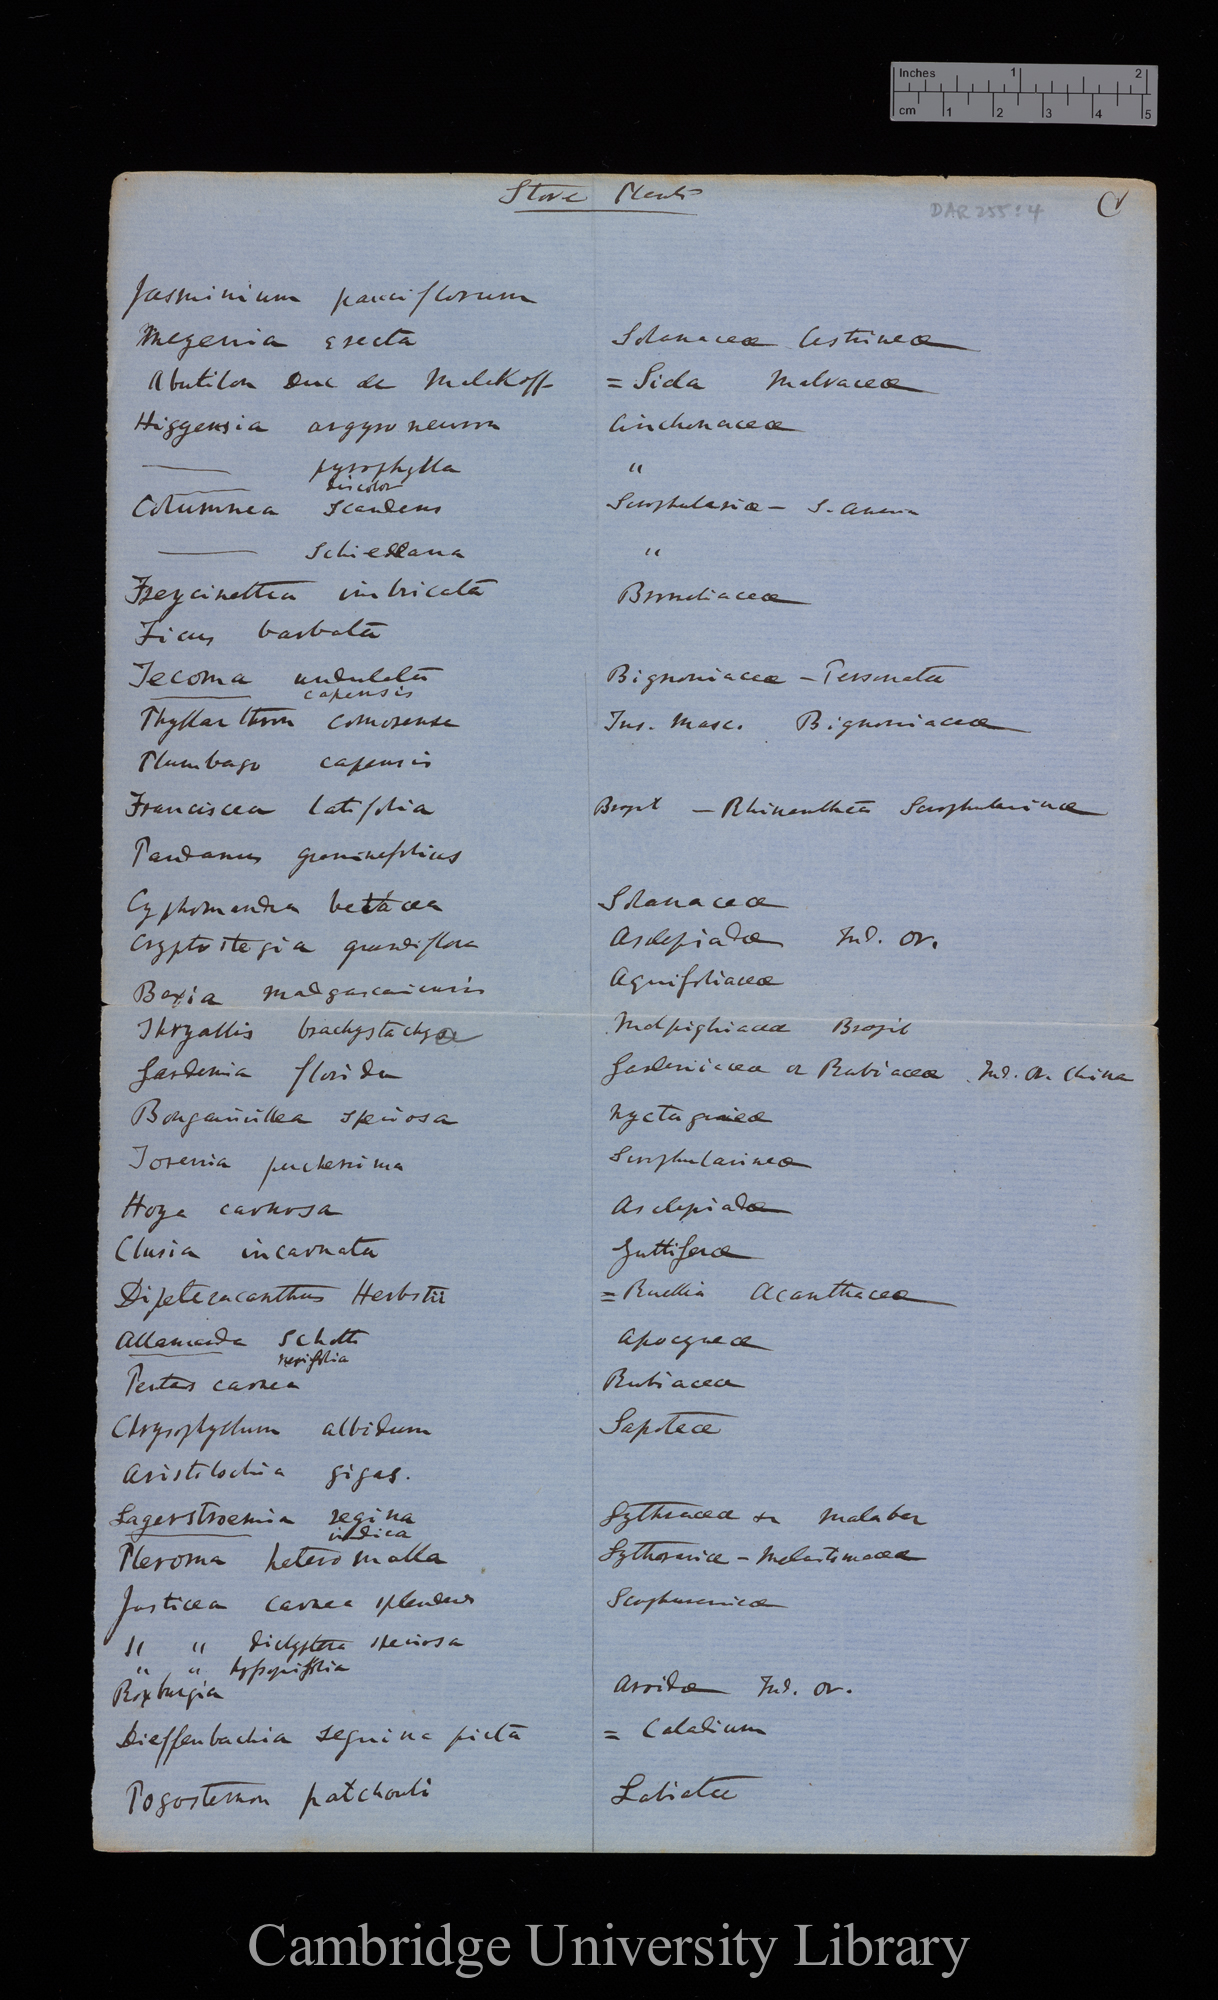 Inches 1 2
cm 1 2 3 4 5
Stove Plants
DAR 255:4
Jasminium pauciflorum
Meyenia erecta Solanaceæ Cestrineæ
Abutilon Duc de Malakoff = Sida Malvaceæ
Higginsia argyroneura Cinchonaceæ
—— pyrophylla "
—— discolor
Columnea scandens Scrophulariæ — S. America
—— Schiedeana "
Freycinettia imbricata Bromeliaceæ
Ficus barbata
Tecoma undulata Bignoniaceæ — Personatæ
—— capensis
Phyllarthron comorense Ins. Masc. Bignoniaceæ
Plumbago capensis
Franciscea latifolia Brazil — Rhinantheæ Scrophularineæ
Pandanus graminifolius
Cyphomandra betacea Solanaceæ
Cryptostegia grandiflora Asclepiadæ Ind. or.
Bexia madgascariensis Aquifoliaceæ
Thryallis brachystachya Malpighiaceæ Brazil
Gardenia florida Gardeniaceæ or Rubiaceæ Ind. Or. China
Bougainvillea speciosa Nyctagineæ
Torenia pucherrima Scrophularineæ
Hoya carnosa Asclepiadæ
Clusia incarnata Guttiferæ
Dipteracanthus Herbstii = Ruellia Acanthaceæ
Allamanda Schotti Apocyneæ
—— neriifolia
Pentas carnea Rubiaceæ
Chrysophyllum albidum Sapoteæ
Aristolochia gigas.
Lagerstroemia regina Lythraceæ Malabar
—— indica
Pleroma heteromalla Lythrariæ — Melastomaceæ
Justicea carnea splendens Scrophularineæ
" " speciosa
" " hyssopifolia
Roxburgia Aroidæ Ind. or.
Dieffenbachia seguina picta = Caladium
Pogostemon patchouli Labiatæ
Cambridge University Library